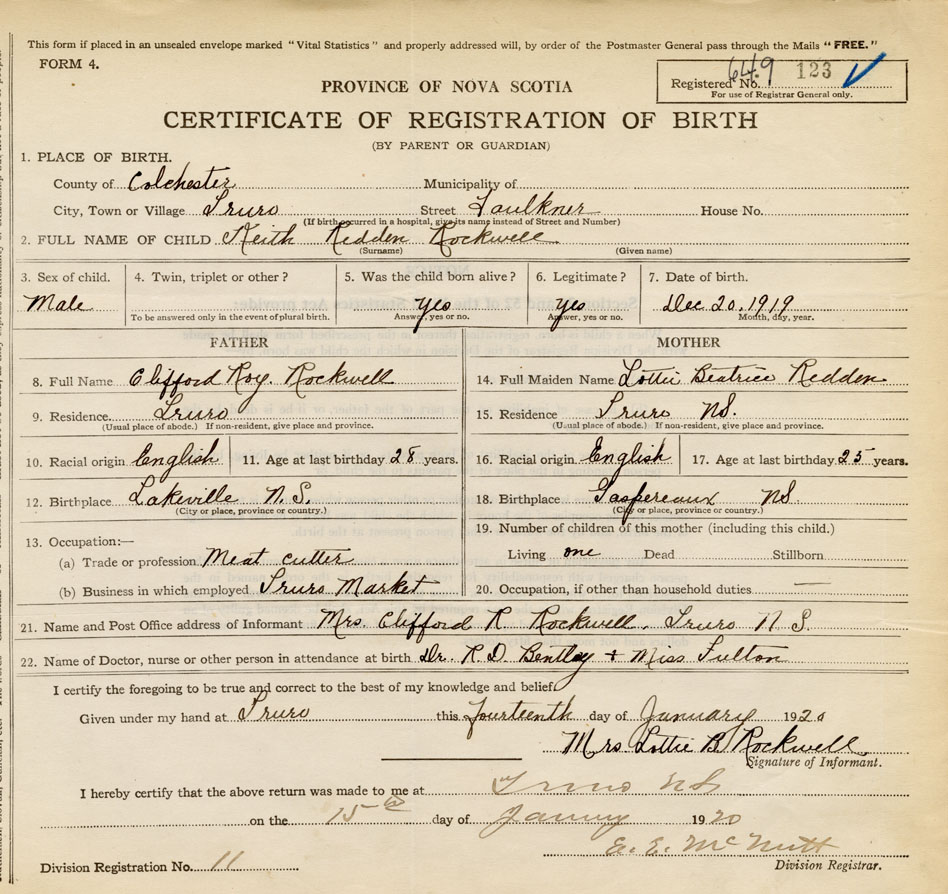 This form if placed in an unsealed envelope marked "Vital Statistics" and properly addressed will, by order of the Postmaster General pass through the Mails "FREE."
FORM 4.
649 123
Registered No.
For use of Registrar General only.
PROVINCE OF NOVA SCOTIA
CERTIFICATE OF REGISTRATION OF BIRTH
(BY PARENT OR GUARDIAN)
1. PLACE OF BIRTH.
County of Colchester Municipality of
City, Town or Village Truro Street Faulkner House No.
(If birth occurred in a hospital, give its name instead of Street and Number)
2. FULL NAME OF CHILD Keith Redden Rockwell
(Surname) (Given name)
3. Sex of child. 4. Twin, triplet or other? 5. Was the child born alive? 6. Legitimate? 7. Date of birth.
Male Yes Yes Dec. 20, 1919
To be answered only in the event of plural birth. Answer, yes or no. Answer, yes or no. Month, day, year.
FATHER MOTHER
8. Full Name Clifford Roy. Rockwell 14. Full Maiden Name Lottie Beatrice Redden
9. Residence. Truro 15. Residence Truro NS.
(Usual place of abode.) If non-resident, give place and province. (Usual place of abode.) If non-resident, give place and province.
10. Racial origin English 11. Age at last birthday 28 years. 16. Racial origin English 17. Age at last birthday 25 years.
12. Birthplace Lakeville N.S. 18. Birthplace Gaspereaux NS.
(City or place, province or country.) (City or place, province or country.)
13. Occupation:— 19. Number of children of this mother (including this child.)
(a) Trade or profession Meat cutter Living one Dead Stillborn
(b) Business in which employed Truro Market 20. Occupation, if other than household duties —
21. Name and Post Office address of Informant Mrs. Clifford R Rockwell. Truro N S.
22. Name of Doctor, nurse or other person in attendance at birth Dr. R.D. Bentley + Miss Fulton
I certify the foregoing to be true and correct to the best of my knowledge and belief.
Given under my hand at Truro this fourteenth day of January 1920
Mrs Lottie B. Rockwell
Signature of Informant.
I hereby certify that the above return was made to me at Truro NS
on the 15 day of January 1920
E. E. McNutt
Division Registration No. 11 Division Registrar.